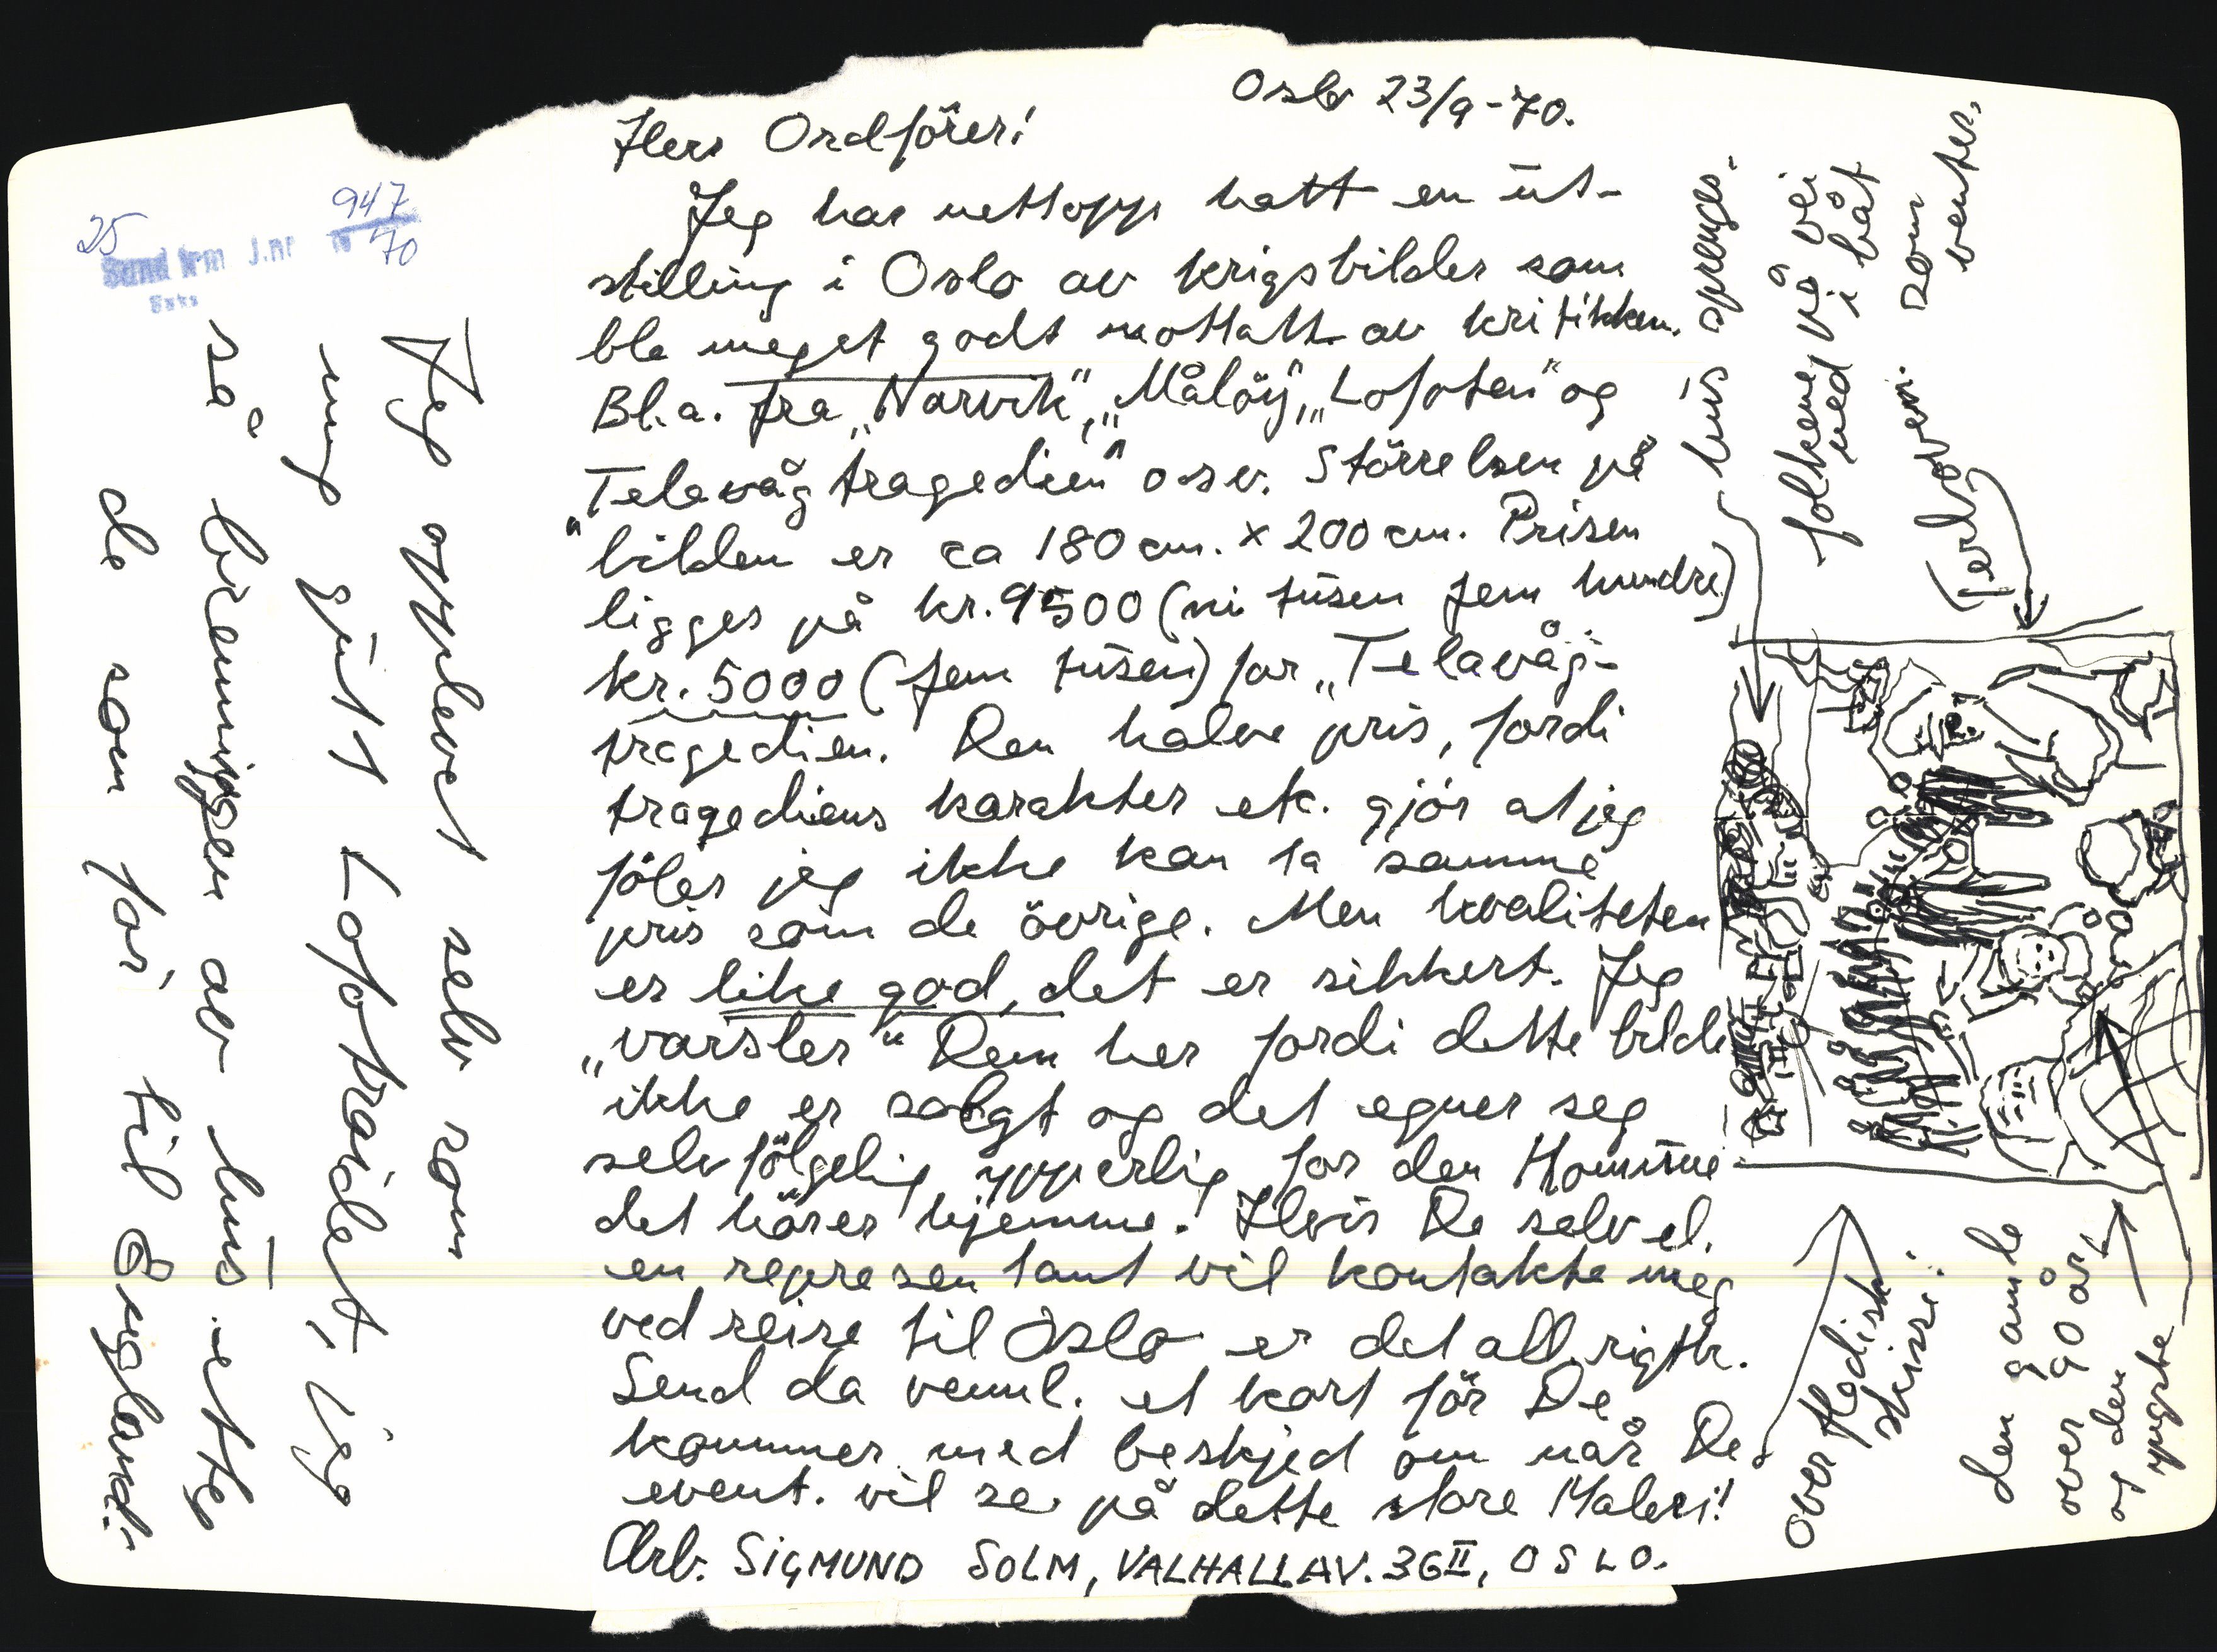 Oslo 23/9-70.
Herr Ordförer!
Jeg har nettopp hatt en ut-
stilling i Oslo av krigsbilder som
ble meget godt mottatt av kritikken.
Bl.a. fra „Narvik", „Måløy", „Lofoten" og
„Telavåg tragedien" osv. Störrelsen på
bilden er ca 180 cm. x 200 cm. Prisen
ligges på kr. 9500 (ni tusen fem hundre)
kr. 5000 (fem tusen) for „Telavåg-
tragedien. Den halve pris, fordi
tragediens karakter etc. gjör at jeg
föler jeg ikke kan ta samme
pris som de övrige. Men kvaliteten
er like god, det er sikkert. Jeg
„varsler" Dem her fordi dette bilde
ikke er solgt og det egner seg
selvfölgelig ypperlig for den Komune
det hörer hjemme! Hvis De selv el.
en representant vil kontakte meg
ved reise til Oslo er det all rigth.
Send da vennl. et kort för De
kommer med beskjed om når De
event. vil se på dette store Maleri!
Arb. SIGMUND SOLM, VALHALLAV. 36 II, OSLO.
25
947
70
Sund frm J.nr 19
Saks
Jeg opplevet selv som
ung gutt Lofotraidet, jeg
så brenningen av hus etter
de som for til England.
hus sprenges.
folkene på vei
ned i båt
som
venter.
Overflödisk
skisse.
den gamle
over 90 år,
og den
yngste